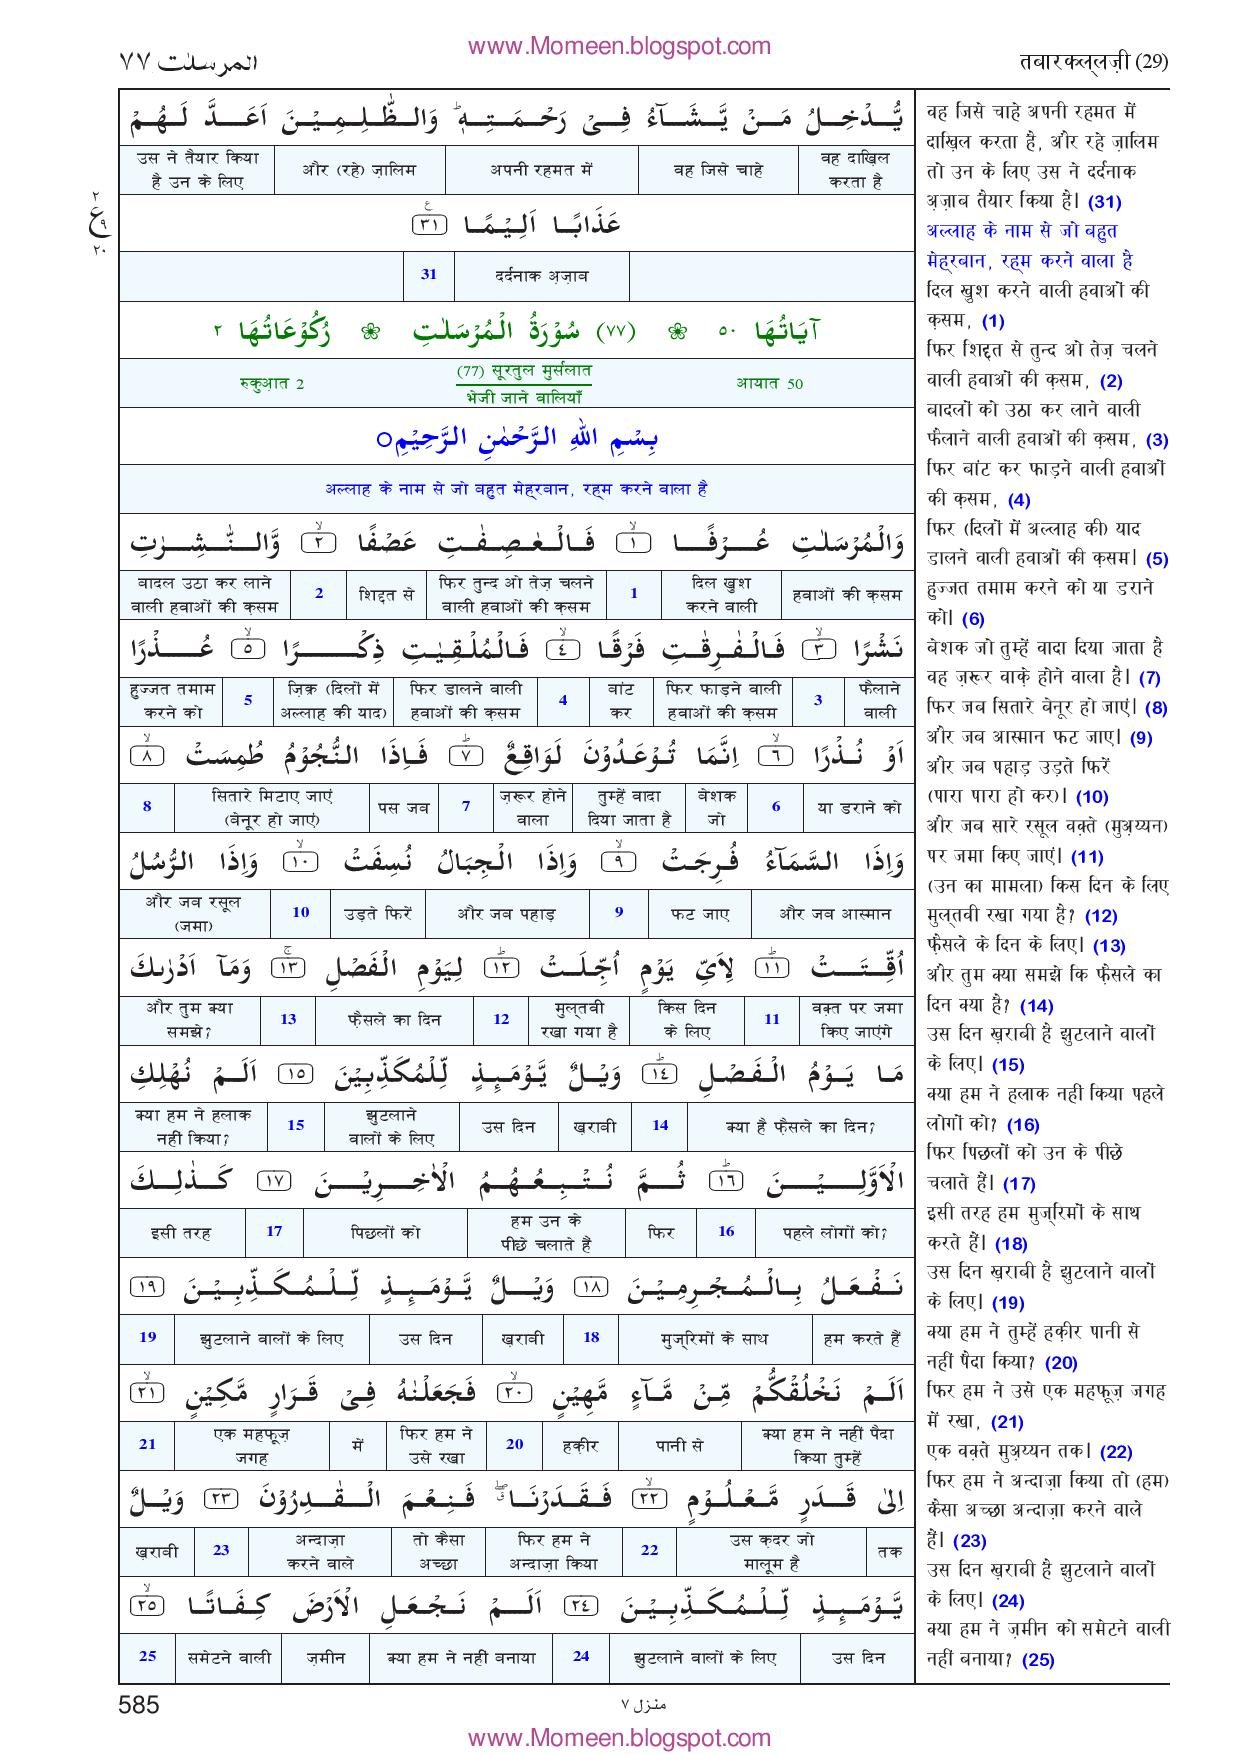 www.Momeen.blogspot.com
المرسلت ٧٧
तबारकल्लज़ी (29)
يُّدْخِلُ مَنْ يَّشَآءُ فِىْ رَحْمَتِهٖ ؕ وَالظّٰلِمِيْنَ اَعَدَّ لَهُمْ
वह दाख़िल करता है
वह जिसे चाहे
अपनी रहमत में
और (रहे) ज़ालिम
उस ने तैयार किया है उन के लिए
٢ ع ٩ ٢٠
عَذَابًا اَلِيْمًا ٣١
दर्दनाक अ़ज़ाब
31
آيَاتُهَا ٥٠ ❀ (٧٧) سُوْرَةُ الْمُرْسَلٰتِ ❀ رُكُوْعَاتُهَا ٢
आयात 50
(77) सूरतुल मुर्सलात
भेजी जाने वालियाँ
रुकुआ़त 2
بِسْمِ اللّٰهِ الرَّحْمٰنِ الرَّحِيْمِ○
अल्लाह के नाम से जो बहुत मेह्रबान, रह्म करने वाला है
وَالْمُرْسَلٰتِ عُرْفًا ١ فَالْعٰصِفٰتِ عَصْفًا ٢ وَّالنّٰشِرٰتِ
हवाओं की क़सम
दिल खुश करने वाली
1
फिर तुन्द ओ तेज़ चलने वाली हवाओं की क़सम
शिद्दत से
2
बादल उठा कर लाने वाली हवाओं की क़सम
نَشْرًا ٣ فَالْفٰرِقٰتِ فَرْقًا ٤ فَالْمُلْقِيٰتِ ذِكْرًا ٥ عُذْرًا
फैलाने वाली
3
फिर फाड़ने वाली हवाओं की क़सम
बांट कर
4
फिर डालने वाली हवाओं की क़सम
ज़िक्र (दिलों में अल्लाह की याद)
5
हुज्जत तमाम करने को
اَوْ نُذْرًا ٦ اِنَّمَا تُوْعَدُوْنَ لَوَاقِعٌ ٧ فَاِذَا النُّجُوْمُ طُمِسَتْ ٨
या डराने को
6
बेशक जो
तुम्हें वादा दिया जाता है
ज़रूर होने वाला
7
पस जब
सितारे मिटाए जाएं (बेनूर हो जाएं)
8
وَاِذَا السَّمَآءُ فُرِجَتْ ٩ وَاِذَا الْجِبَالُ نُسِفَتْ ١٠ وَاِذَا الرُّسُلُ
और जब आस्मान
फट जाए
9
और जब पहाड़
उड़ते फिरें
10
और जब रसूल (जमा)
اُقِّتَتْ ١١ لِاَىِّ يَوْمٍ اُجِّلَتْ ١٢ لِيَوْمِ الْفَصْلِ ١٣ وَمَآ اَدْرٰىكَ
वक़्त पर जमा किए जाएंगे
11
किस दिन के लिए
मुल्तवी रखा गया है
12
फ़ैसले का दिन
13
और तुम क्या समझे?
مَا يَوْمُ الْفَصْلِ ١٤ وَيْلٌ يَّوْمَئِذٍ لِّلْمُكَذِّبِيْنَ ١٥ اَلَمْ نُهْلِكِ
क्या है फ़ैसले का दिन?
14
ख़राबी
उस दिन
झुटलाने वालों के लिए
15
क्या हम ने हलाक नहीं किया?
الْاَوَّلِيْنَ ١٦ ثُمَّ نُتْبِعُهُمُ الْاٰخِرِيْنَ ١٧ كَذٰلِكَ
पहले लोगों को?
16
फिर
हम उन के पीछे चलाते हैं
पिछलों को
17
इसी तरह
نَفْعَلُ بِالْمُجْرِمِيْنَ ١٨ وَيْلٌ يَّوْمَئِذٍ لِّلْمُكَذِّبِيْنَ ١٩
हम करते हैं
मुज्रिमों के साथ
18
ख़राबी
उस दिन
झुटलाने वालों के लिए
19
اَلَمْ نَخْلُقْكُّمْ مِّنْ مَّآءٍ مَّهِيْنٍ ٢٠ فَجَعَلْنٰهُ فِىْ قَرَارٍ مَّكِيْنٍ ٢١
क्या हम ने नहीं पैदा किया तुम्हें
पानी से
हक़ीर
20
फिर हम ने उसे रखा
में
एक महफूज़ जगह
21
اِلٰى قَدَرٍ مَّعْلُوْمٍ ٢٢ فَقَدَرْنَا ۖ فَنِعْمَ الْقٰدِرُوْنَ ٢٣ وَيْلٌ
तक
उस क़दर जो मालूम है
22
फिर हम ने अन्दाज़ा किया
तो कैसा अच्छा
अन्दाज़ा करने वाले
23
ख़राबी
يَّوْمَئِذٍ لِّلْمُكَذِّبِيْنَ ٢٤ اَلَمْ نَجْعَلِ الْاَرْضَ كِفَاتًا ٢٥
उस दिन
झुटलाने वालों के लिए
24
क्या हम ने नहीं बनाया
ज़मीन
समेटने वाली
25
वह जिसे चाहे अपनी रहमत में
दाख़िल करता है, और रहे ज़ालिम
तो उन के लिए उस ने दर्दनाक
अ़ज़ाब तैयार किया है। (31)
अल्लाह के नाम से जो बहुत
मेह्रबान, रह्म करने वाला है
दिल खुश करने वाली हवाओं की
क़सम, (1)
फिर शिद्दत से तुन्द ओ तेज़ चलने
वाली हवाओं की क़सम, (2)
बादलों को उठा कर लाने वाली
फैलाने वाली हवाओं की क़सम, (3)
फिर बांट कर फाड़ने वाली हवाओं
की क़सम, (4)
फिर (दिलों में अल्लाह की) याद
डालने वाली हवाओं की क़सम। (5)
हुज्जत तमाम करने को या डराने
को। (6)
बेशक जो तुम्हें वादा दिया जाता है
वह ज़रूर वाक़े होने वाला है। (7)
फिर जब सितारे बेनूर हो जाएं। (8)
और जब आस्मान फट जाए। (9)
और जब पहाड़ उड़ते फिरें
(पारा पारा हो कर)। (10)
और जब सारे रसूल वक़्ते (मुअ़य्यन)
पर जमा किए जाएं। (11)
(उन का मामला) किस दिन के लिए
मुल्तवी रखा गया है? (12)
फ़ैसले के दिन के लिए। (13)
और तुम क्या समझे कि फ़ैसले का
दिन क्या है? (14)
उस दिन ख़राबी है झुटलाने वालों
के लिए। (15)
क्या हम ने हलाक नही किया पहले
लोगों को? (16)
फिर पिछलों को उन के पीछे
चलाते हैं। (17)
इसी तरह हम मुज्रिमों के साथ
करते हैं। (18)
उस दिन ख़राबी है झुटलाने वालों
के लिए। (19)
क्या हम ने तुम्हें हक़ीर पानी से
नहीं पैदा किया? (20)
फिर हम ने उसे एक महफूज़ जगह
में रखा, (21)
एक वक़्ते मुअ़य्यन तक। (22)
फिर हम ने अन्दाज़ा किया तो (हम)
कैसा अच्छा अन्दाज़ा करने वाले
हैं। (23)
उस दिन ख़राबी है झुटलाने वालों
के लिए। (24)
क्या हम ने ज़मीन को समेटने वाली
नहीं बनाया? (25)
585
منزل ٧
www.Momeen.blogspot.com